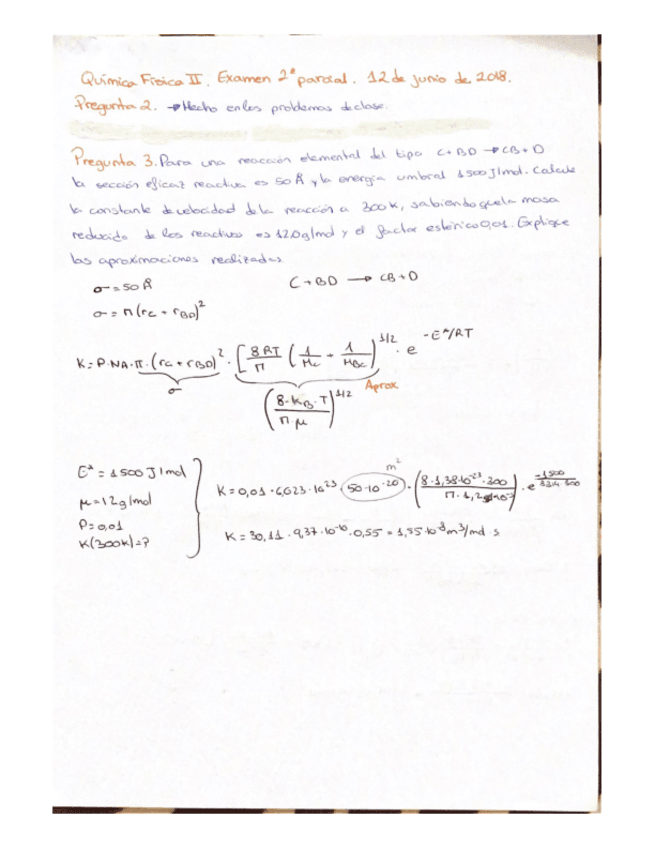 Química Física II. Examen 2º parcial. 12 de junio de 2018.
Pregunta 2. → Hecho en los problemas de clase.
Pregunta 3. Para una reacción elemental del tipo C + BD → CB + D
la sección eficaz reactiva es 50 Å y la energía umbral 1500 J/mol. Calcule
la constante de velocidad de la reacción a 300K, sabiendo que la masa
reducida de los reactivos es 120g/mol y el factor estérico 0,01. Explique
las aproximaciones realizadas.
σ = 50 Å C + BD → CB + D
σ = π (rc + rBD)²
K = P·NA·π·(rc + rBD)²·[8RT/π (1/Mc + 1/MBC)]^1/2 · e^-E*/RT
σ Aprox
(8·kB·T/π·μ)^1/2
E* = 1500 J/mol
μ = 12 g/mol
P = 0,01
K(300K) = ?
m²
K = 0,01 · 6,023·10²³ (50·10⁻²⁰) · (8·1,38·10⁻²³·300/π·) · e^-1500/8,314·300
K = 30,11 · 9,37·10⁻¹⁰ · 0,55 = 1,55·10⁻⁸ m³/mol · s